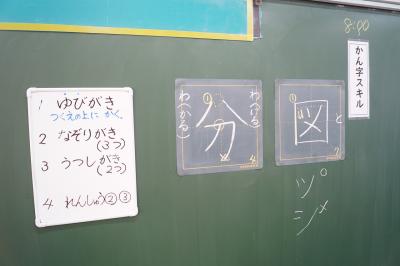 8:00
かん字スキル
1 ゆびがき
つくえの上に かく。
2 なぞりがき
(3つ)
3 うつしがき
(2つ)
4 れんしゅう②③
わ(かる)
①
分
わ(ける)
4
①
図
と
7
ツ
シメ